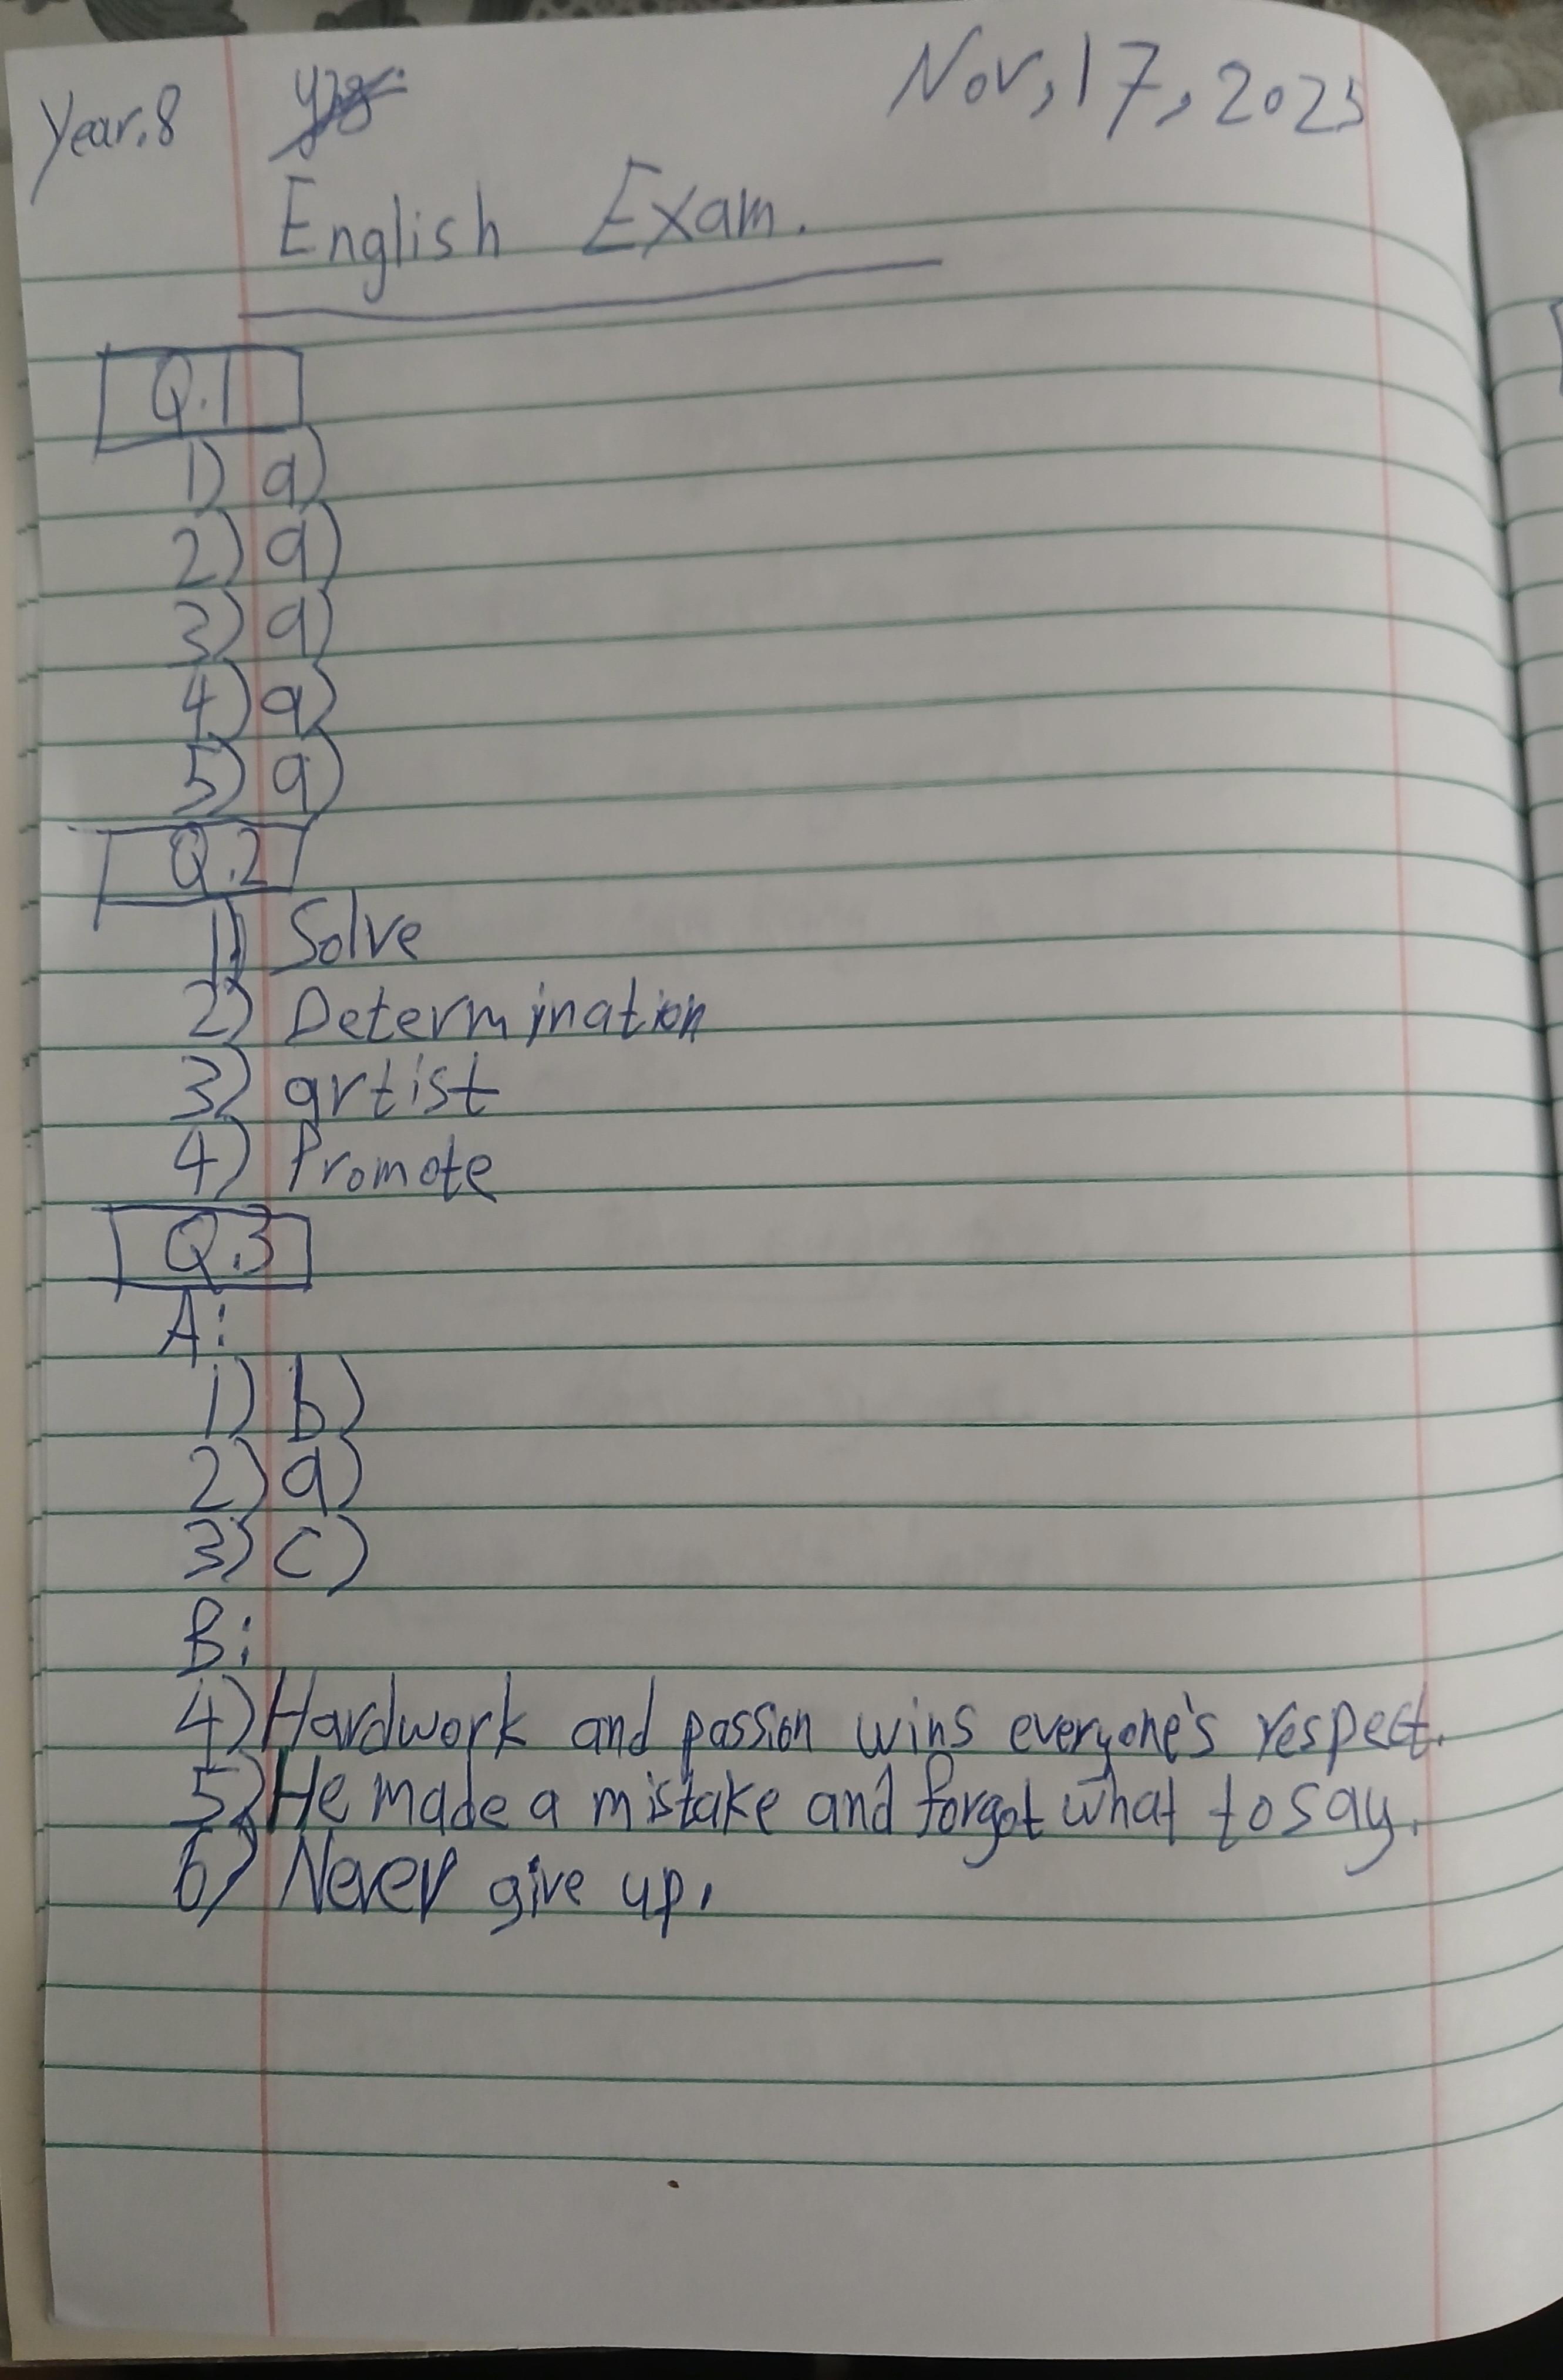 Year.8 Nov, 17, 2025
English Exam.
Q.1
1) a)
2) a)
3) a)
4) a)
5) a)
Q.2
1) Solve
2) Determination
3) artist
4) Promote
Q.3
A:
1) b)
2) a)
3) c)
B:
4) Hardwork and passion wins everyone's respect.
5) He made a mistake and forgot what to say.
6) Never give up.